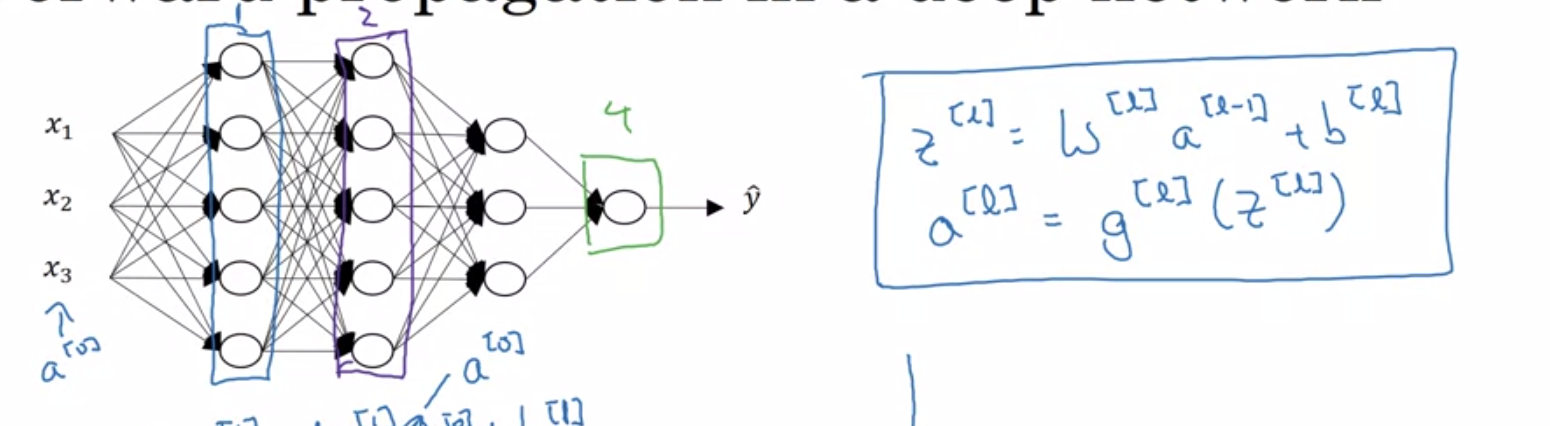 propagation in a deep network
1
2
4
x₁
x₂
x₃
ŷ
a^[0]
a^[0]
z^[l] = W^[l] a^[l-1] + b^[l]
a^[l] = g^[l] (z^[l])